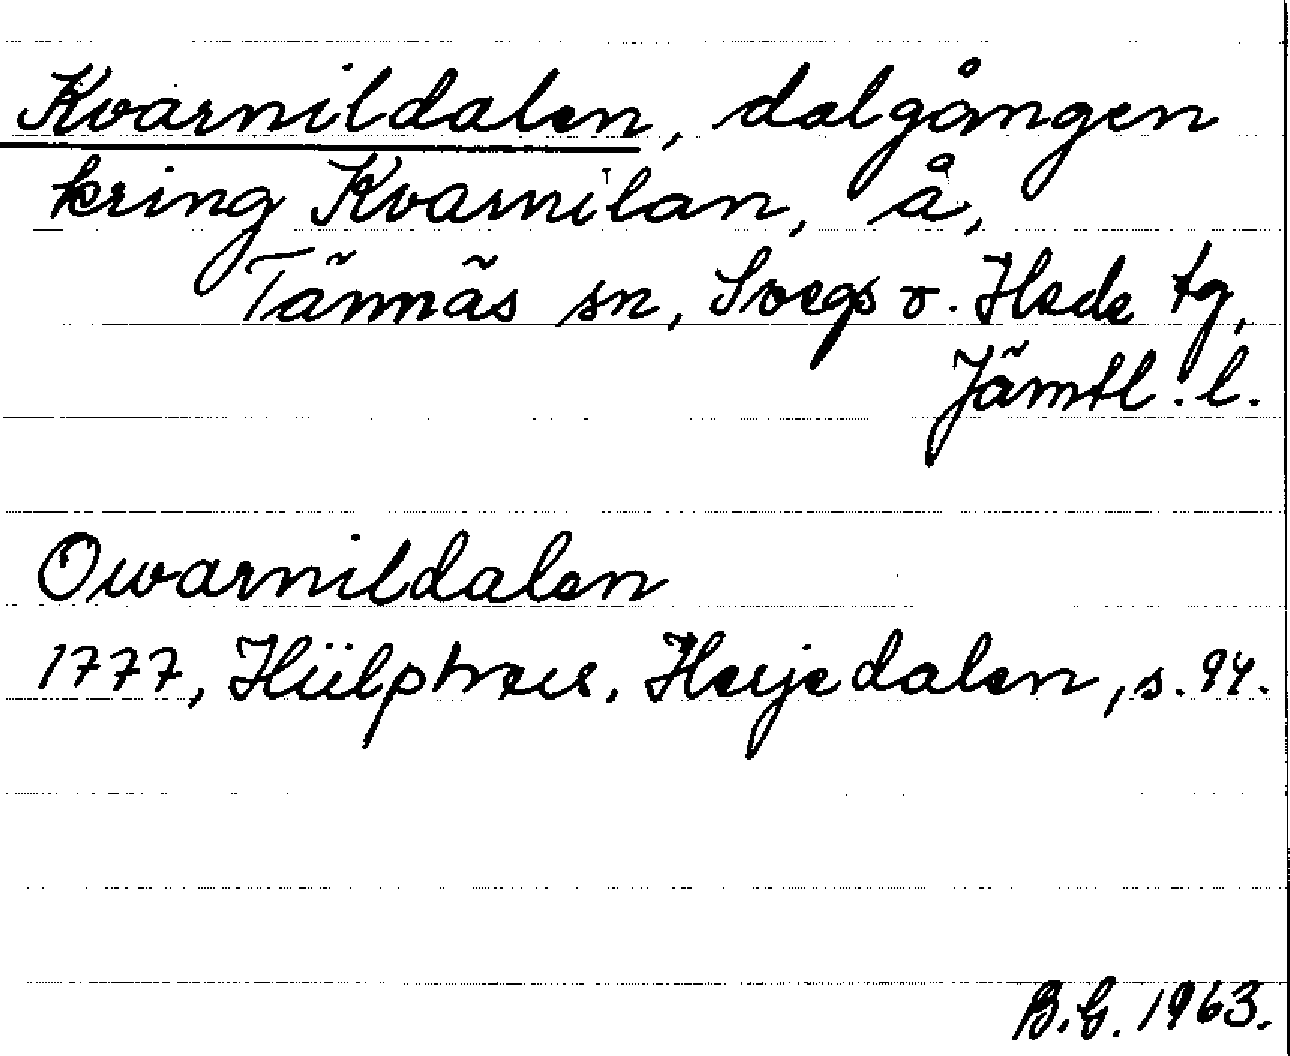 Kvarnildalen, dalgången
kring Kvarnilan, å,
Tännäs sn, Svegs o. Hede tg,
Jämtl. l.
Qwarnildalen
1777, Hülphers, Herjedalen, s. 94.
B.G. 1963.